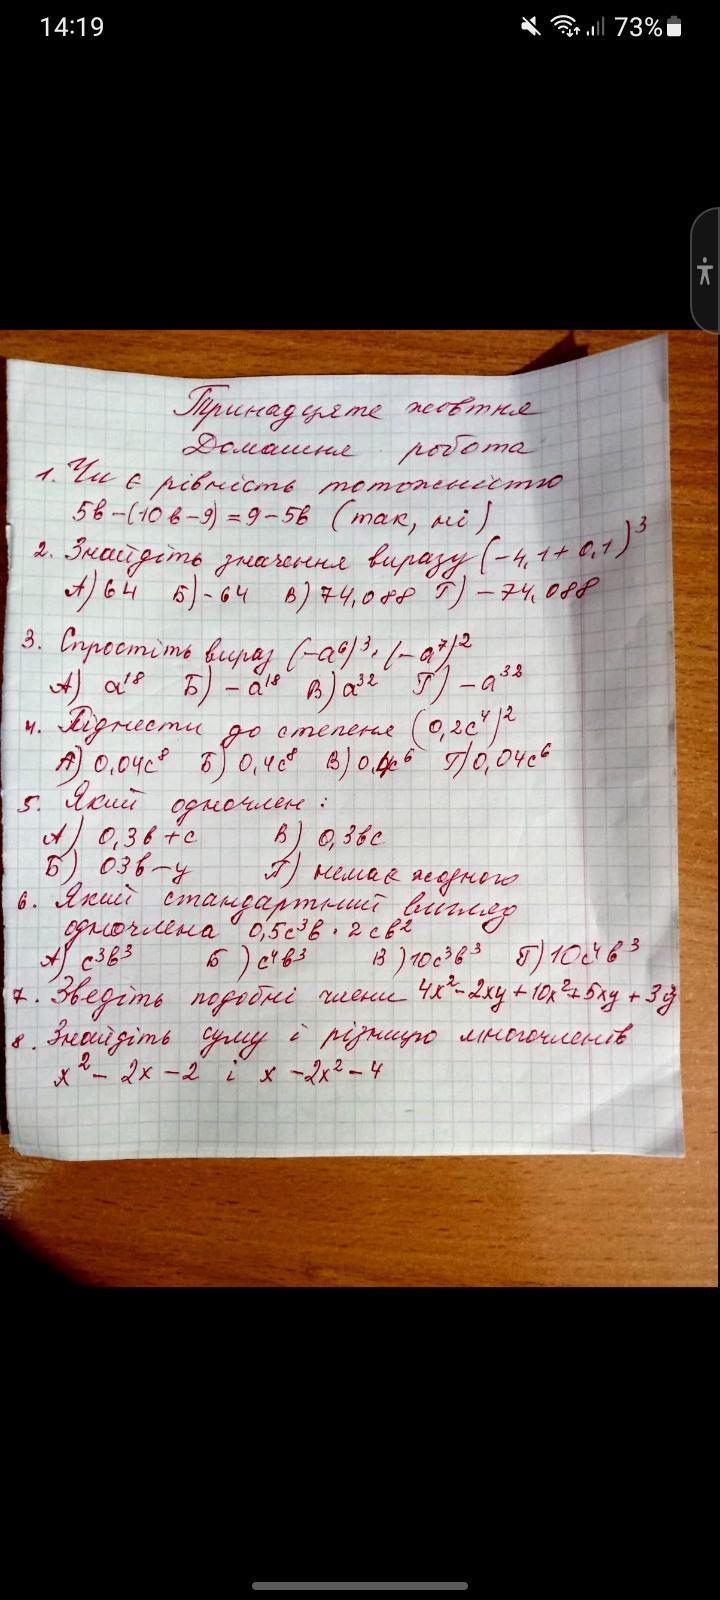 14:19 73%
Тринадцяте жовтня
Домашня робота
1. Чи є рівність тотожністю
5в-(10в-9)=9-5в (так, ні)
2. Знайдіть значення виразу (-4,1+0,1)³
А) 64 Б) -64 В) 74,088 Г) -74,088
3. Спростіть вираз (-а⁶)³·(-а⁷)²
А) а¹⁸ Б) -а¹⁸ В) а³² Г) -а³²
4. Піднести до степеня (0,2с⁴)²
А) 0,04с⁸ Б) 0,4с⁸ В) 0,4с⁶ Г) 0,04с⁶
5. Який одночлен:
А) 0,3в+с В) 0,3вс
Б) 03в-у Г) немає жодного
6. Який стандартний вигляд
одночлена 0,5с³в·2св²
А) с³в³ Б) с⁴в³ В) 10с³в³ Г) 10с⁴в³
7. Зведіть подобні члени 4х²-2ху+10х²+5ху+3
8. Знайдіть суму і різницю многочленів
х²-2х-2 і х-2х²-4